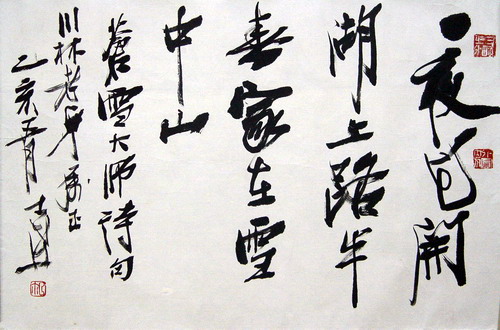 一夜花開
湖上路半
春家在雪
中山
蒼雪大师詩句
川林老属正
乙亥五月